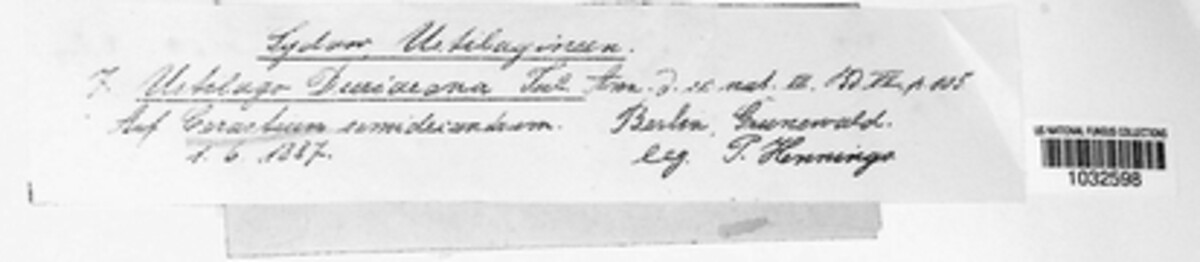 Sydow, Ustilagineen.
7. Ustilago Duriaeana Tul. Ann. d. sc. nat. III. VII. p. 105
Auf Cerastium semidecandrum. Berlin, Grunewald.
1. 6. 1887. leg. P. Hennings
US NATIONAL FUNGUS COLLECTIONS
1032598